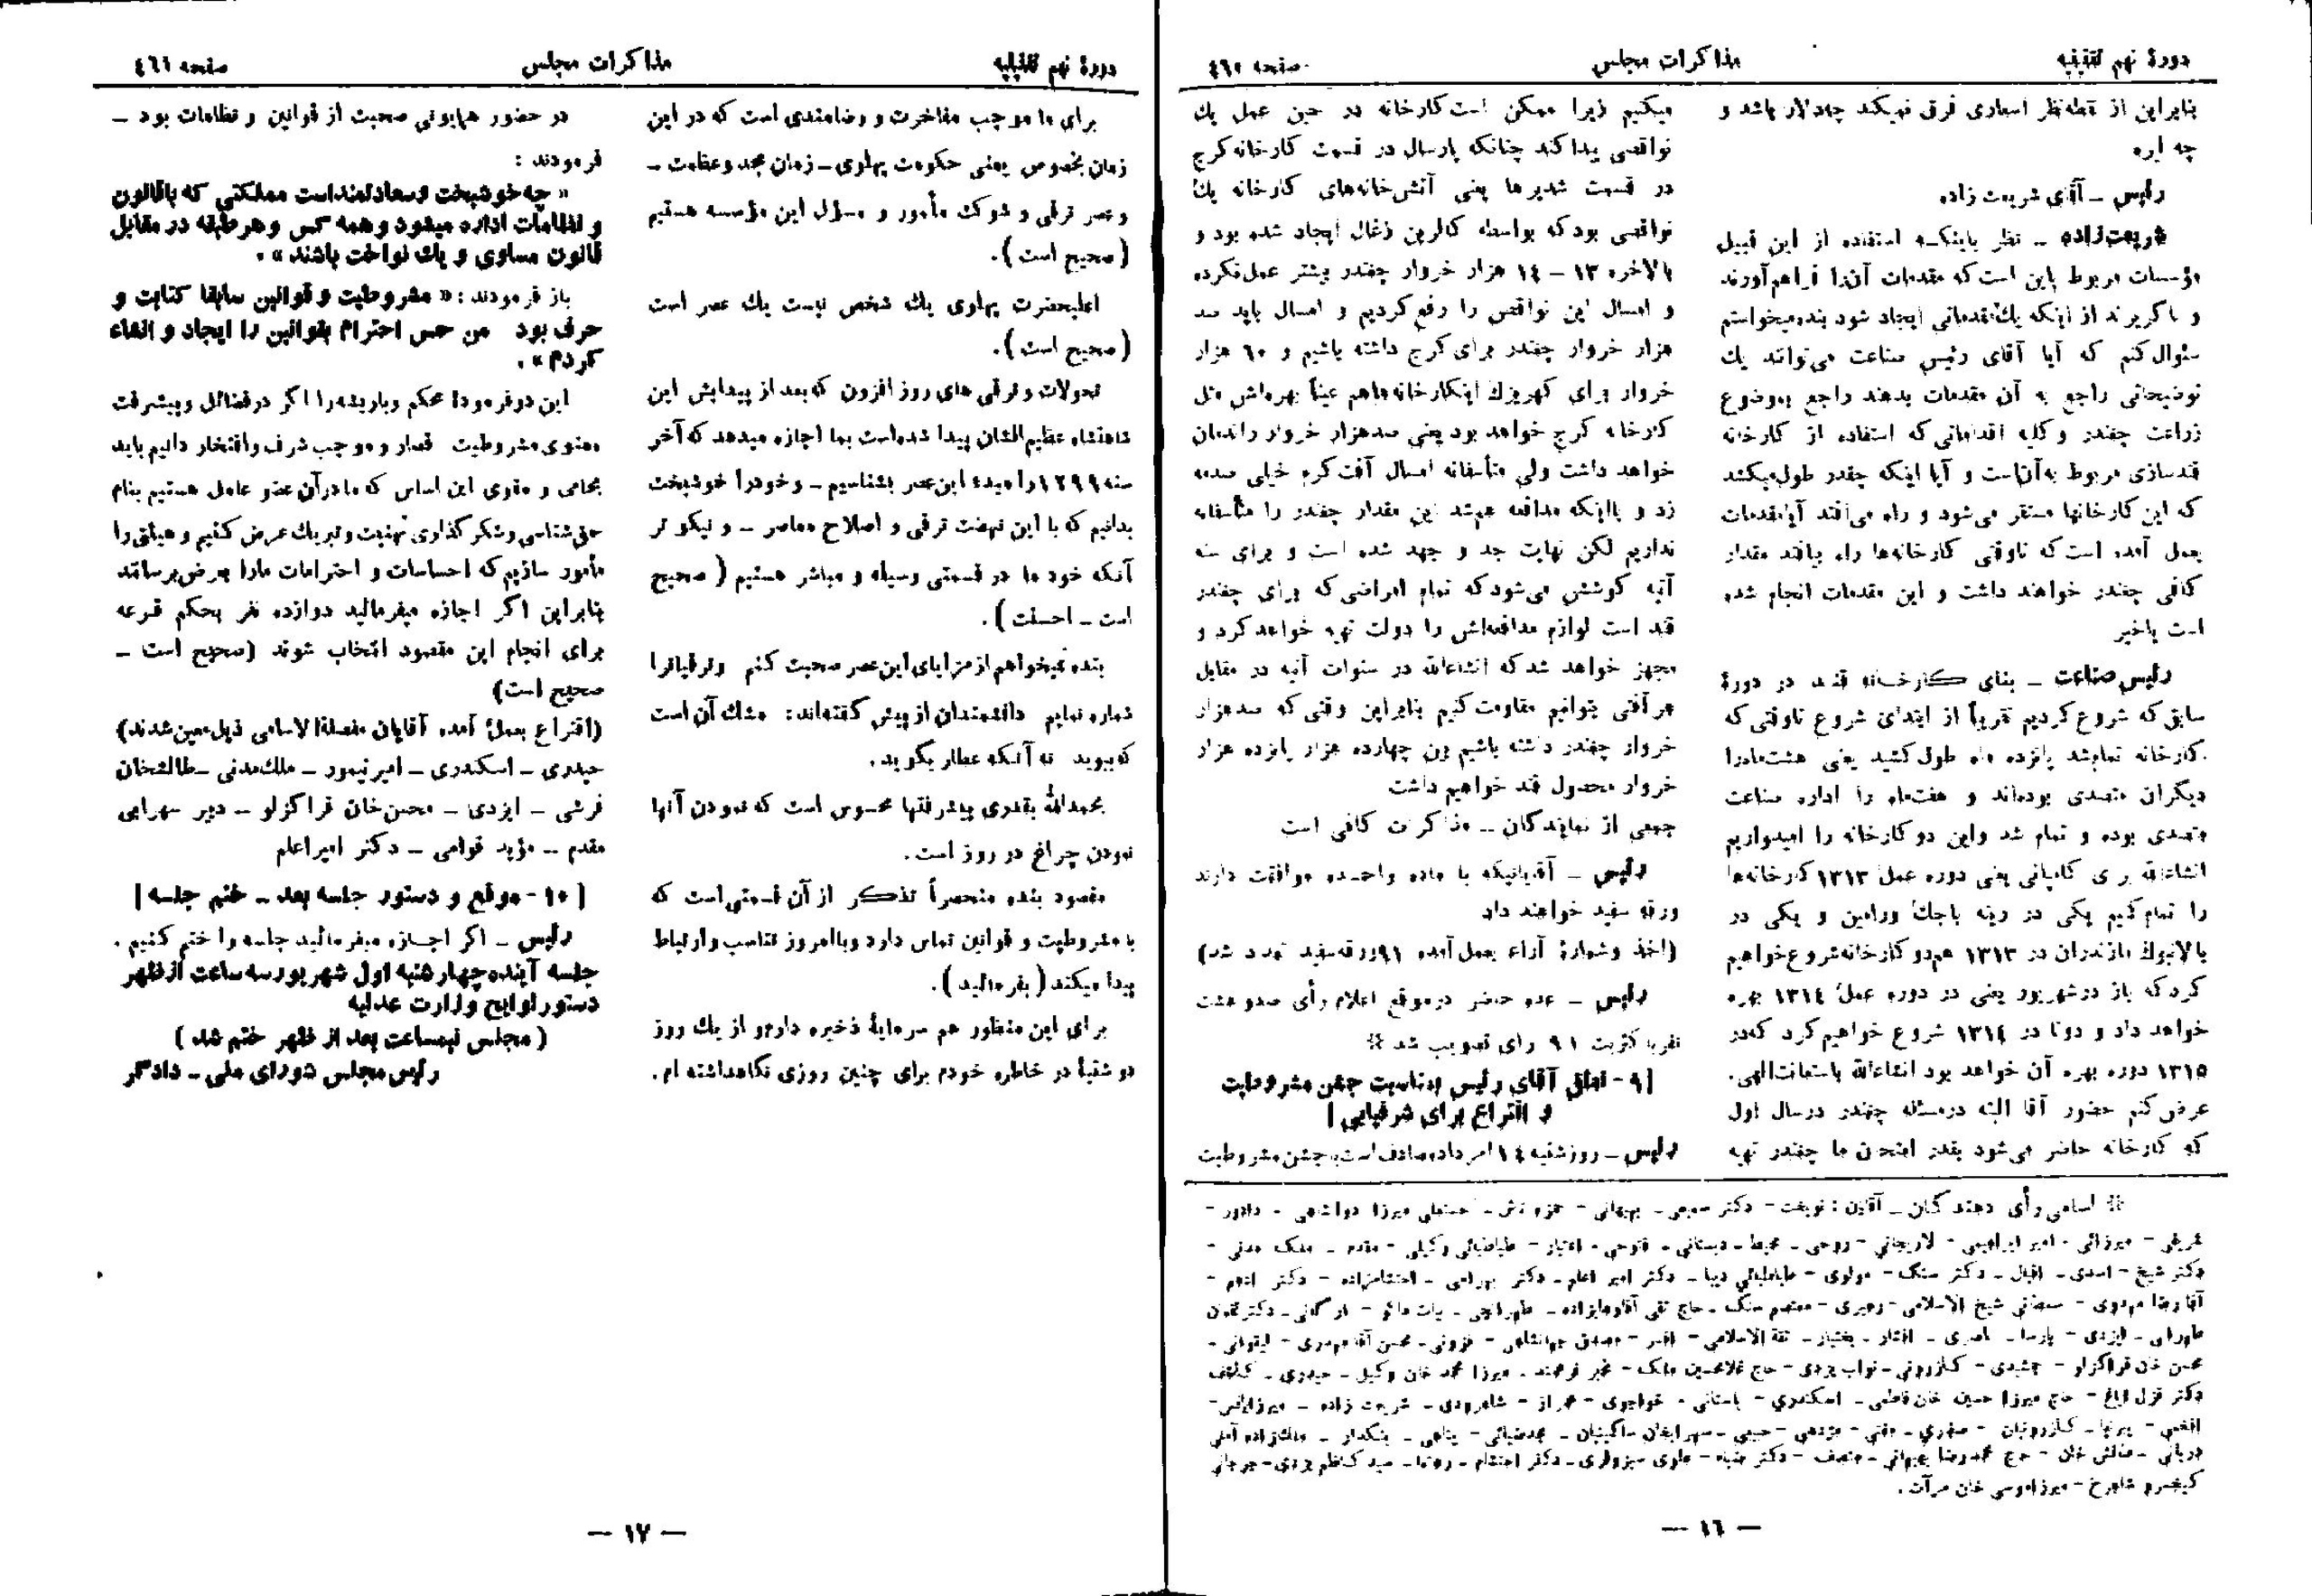 دورهٔ نهم تقنینیه
مذاکرات مجلس
صفحه ٤٦٠
بنابراین از نقطه‌نظر اسعاری فرق نمیکند چه دلار باشد و
چه لیره
رئیس ــ آقای شریعت زاده
شریعت‌زاده ــ نظر باینکه استفاده از این قبیل
مؤسسات مربوط باین است که مقدمات آن را فراهم آورند
و ناگزیرند از اینکه یک مقدماتی ایجاد شود بنده میخواستم
سئوال کنم که آیا آقای رئیس صناعت می‌توانند یک
توضیحاتی راجع به آن مقدمات بدهند راجع بموضوع
زراعت چغندر و کلیه اقداماتی که استفاده از کارخانه
قندسازی مربوط به آن است و آیا اینکه چقدر طول میکشد
که این کارخانها مستقر می‌شود و راه می‌افتد آیا مقدمات
بعمل آمده است که تاوقتی کارخانه‌ها راه بیافتد مقدار
کافی چغندر خواهند داشت و این مقدمات انجام شده
است یاخیر
رئیس صناعت ــ بنای کارخانه قند در دورهٔ
سابق که شروع کردیم تقریباً از ابتدای شروع تاوقتی که
کارخانه تمام شد پانزده ماه طول کشید یعنی هشت ماه را
دیگران متصدی بوده‌اند و هفت ماه را اداره صناعت
متصدی بوده و تمام شد واین دو کارخانه را امیدواریم
انشاءالله برای کمپانی یعنی دوره عمل ١٣١٣ کارخانه‌ها
را تمام کنیم یکی در رینه باجک ورامین و یکی در
بالانبوک مازندران در ١٣١٣ هم دو کارخانه شروع خواهیم
کرد که باز در شهریور یعنی در دوره عمل ١٣١٤ بهره
خواهد داد و دوتا در ١٣١٤ شروع خواهیم کرد که در
١٣١٥ دوره بهره آن خواهد بود انشاءالله باستعانت‌الهی.
عرض کنم حضور آقا البته درمسئله چغندر درسال اول
که کارخانه حاضر می‌شود بقدر امتحان ما چغندر تهیه
میکنیم زیرا ممکن است کارخانه در حین عمل یک
نواقصی پیدا کند چنانکه پارسال در قسمت کارخانه کرج
در قسمت شدیرها یعنی آتش‌خانه‌های کارخانه یک
نواقصی بود که بواسطه کالرین ذغال ایجاد شده بود و
بالاخره ١٣ ــ ١٤ هزار خروار چغندر بیشتر عمل نکرده
و امسال این نواقص را رفع کردیم و امسال باید صد
هزار خروار چغندر برای کرج داشته باشیم و ٦٠ هزار
خروار برای کهریزک اینکارخانه‌ها هم عیناً بهره‌اش مثل
کارخانه کرج خواهد بود یعنی صدهزار خروار راندمان
خواهد داشت ولی متأسفانه امسال آفت کرم خیلی صدمه
زد و بااینکه مدافعه هم شد این مقدار چغندر را متأسفانه
نداریم لکن نهایت جد و جهد شده است و برای سنه
آتیه کوشش می‌شود که تمام امراضی که برای چغندر
قند است لوازم مدافعه‌اش را دولت تهیه خواهد کرد و
مجهز خواهد شد که انشاءالله در سنوات آتیه در مقابل
هر آفتی بتوانیم مقاومت کنیم بنابراین وقتی که صدهزار
خروار چغندر داشته باشیم بین چهارده هزار پانزده هزار
خروار محصول قند خواهیم داشت
جمعی از نمایندگان ــ مذاکرات کافی است
رئیس ــ آقایانیکه با ماده واحده موافقت دارند
ورقه سفید خواهند داد
(اخذ وشمارهٔ آراء بعمل آمده ٩١ ورقه سفید تعداد شد)
رئیس ــ عده حاضر درموقع اعلام رأی صدو هشت
نفر باکثریت ٩١ رأی تصویب شد *
[٩ - نطق آقای رئیس بمناسبت جشن مشروطیت
و اقتراع برای شرفیابی]
رئیس ــ روز شنبه ١٤ امرداد مصادف است با جشن مشروطیت
* اسامی رأی دهندگان ــ آقایان : نوبخت - دکتر سمیعی ــ بهبهانی - حمزه تاش ــ حسنعلی میرزا دولتشاهی - دادور -
شریفی - میرزائی - امیر ابراهیمی - لاریجانی - روحی ــ محیط ــ دبستانی - فتوحی - اعتبار - طباطبائی وکیلی - مقدم ــ ملک مدنی -
دکتر شیخ - اسدی ــ اقبال ــ دکتر سنگ - مولوی - طباطبائی دیبا ــ دکتر امیر اعلم ــ دکتر بهرامی ــ احتشام‌زاده - دکتر ادهم -
آقا رضا مهدوی - سلطانی شیخ الاسلامی - رهبری - معتصم سنگ ــ حاج تقی آقا وهابزاده ــ طهرانچی ــ بیات ماکو - ارگانی ــ دکتر لقمان
طهرانی ــ ایزدی - پارسا ــ ناصری ــ افشار ــ بختیار ــ ثقة الاسلامی - افسر - مصدق جهانشاهی - قزونی ــ محسن آقا مهدوی - لیقوانی -
محسن خان قراگزلو - جمشیدی - کازرونی - نواب یزدی - حاج غلامحسین ملک - مخبر فرهمند ــ میرزا محمد خان وکیل ــ حیدری ــ کاشف
دکتر قزل ایاغ - حاج میرزا حسین خان فاطمی ــ اسکندری - باستانی - خواجوی - همراز - شاهرودی ــ شریعت زاده ــ میرزایانس -
افخمی - بیرنیا ــ کازرونیان - صفوری ــ مفتی - مژدهی - حبیبی ــ سهرابخان ساگینیان ــ محمدضیائی - پناهی ــ بنکدار ــ ملک‌زاده آملی
دربانی ــ طالش خان - حاج محمدرضا بهبهانی ــ منصف - دکتر ضیاء - علوی سبزواری ــ دکتر احتشام ــ رهنما ــ سید کاظم یزدی - جرجانی
کیخسرو شاهرخ - میرزا موسی خان مرآت .
— ١٦ —
دورهٔ نهم تقنینیه
مذاکرات مجلس
صفحه ٤٦١
برای ما موجب مفاخرت و رضامندی است که در این
زمان بخصوص یعنی حکومت پهلوی ــ زمان مجد وعظمت ــ
و عصر ترقی و شوکت مأمور و مسؤل این مؤسسه هستیم
(صحیح است).
اعلیحضرت پهلوی یک شخص نیست یک عصر است
(صحیح است).
تحولات و ترقی های روز افزون که بعد از پیدایش این
شاهنشاه عظیم‌الشان پیدا شده‌است بما اجازه میدهد که آخر
سنه ١٢٩٩ را مبدء این عصر بشناسیم ــ و خود را خوشبخت
بدانیم که با این نهضت ترقی و اصلاح معاصر ــ و نیکو تر
آنکه خود ما در قسمتی وسیله و مباشر هستیم ( صحیح
است ــ احسنت ).
بنده نمیخواهم از مزایای این عصر صحبت کنم وترقیاترا
شماره نمایم دانشمندان از پیش گفته‌اند: مشک آن است
که ببوید نه آنکه عطار بگوید.
بحمدالله بقدری پیشرفتها محسوس است که نمودن آنها
نمودن چراغ در روز است.
مقصود بنده منحصراً تذکر از آن قسمتی است که
با مشروطیت و قوانین تماس دارد و باامروز تناسب وارتباط
پیدا میکند (بفرمائید).
برای این منظور هم سرمایهٔ ذخیره دارم و از یک روز
دو شنبهٔ در خاطره خودم برای چنین روزی نگاهداشته ام.
در حضور همایونی صحبت از قوانین و نظامات بود ــ
فرمودند :
« چه خوشبخت وسعادتمنداست مملکتی که باقانون
و انتظامات اداره میشود و همه کس و هر طبقه در مقابل
قانون مساوی و یک نواخت باشند » .
باز فرمودند : « مشروطیت و قوانین سابقا کتابت و
حرف بود من حس احترام بقوانین را ایجاد و انشاء
کردم » .
این دو فرموده‌ٔ محکم و باریشه را اگر در فضائل و پیشرفت
معنوی مشروطیت قصار و موجب شرف وافتخار دانیم باید
بحامی و مقوی این اساس که ما درآن عضو عامل هستیم بنام
حق‌شناسی و شکرگذاری تهنیت و تبریک عرض کنیم و هیئتی را
مأمور سازیم که احساسات و احترامات مارا بعرض برسانند
بنابراین اگر اجازه میفرمائید دوازده نفر بحکم قرعه
برای انجام این مقصود انتخاب شوند (صحیح است ــ
صحیح است)
(اقتراع بعمل آمده آقایان مفصلةالاسامی ذیل معین شدند)
حیدری ــ اسکندری ــ امیر تیمور ــ ملک‌مدنی ــ طالشخان
فرشی ــ ایزدی ــ محسن خان قراگزلو ــ دبیر سهرابی
مقدم ــ مؤید قوامی ــ دکتر امیراعلم
[ ١٠ - موقع و دستور جلسه بعد ــ ختم جلسه ]
رئیس ــ اگر اجازه میفرمائید جلسه را ختم کنیم .
جلسه آینده چهارشنبه اول شهریور سه ساعت از ظهر
دستور لوایح وزارت عدلیه
( مجلس نیمساعت بعد از ظهر ختم شد )
رئیس مجلس شورای ملی ــ دادگر
— ١٧ —